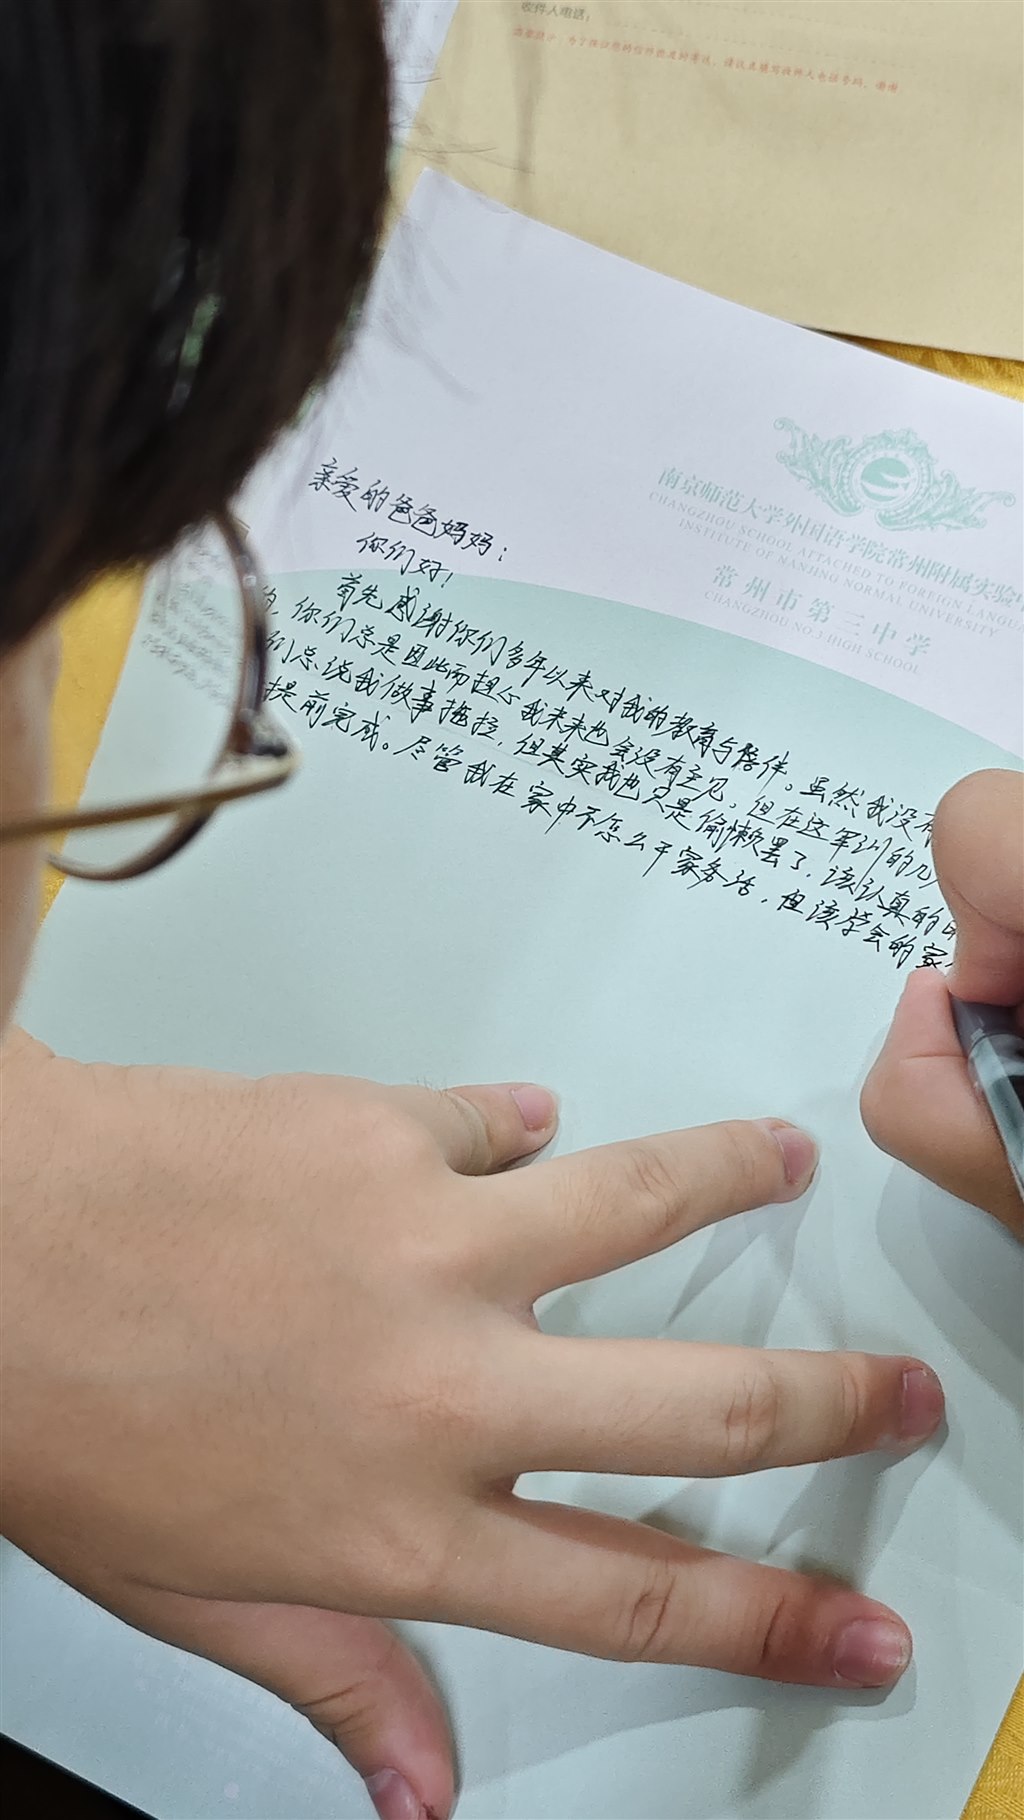 收件人电话：
南京师范大学外国语学院常州附属实验
CHANGZHOU SCHOOL ATTACHED TO FOREIGN LANGUA
INSTITUTE OF NANJING NORMAL UNIVERSITY
常州市第三中学
CHANGZHOU NO.3 HIGH SCHOOL
亲爱的爸爸妈妈：
你们好！
首先感谢你们多年以来对我的教育与陪伴。虽然我没有
，你们总是因此而担心我未来也会没有主见。但在这军训的几
们总说我做事拖拉，但其实我也只是偷懒罢了，该认真的
提前完成。尽管我在家中不怎么干家务活，但该学会的家